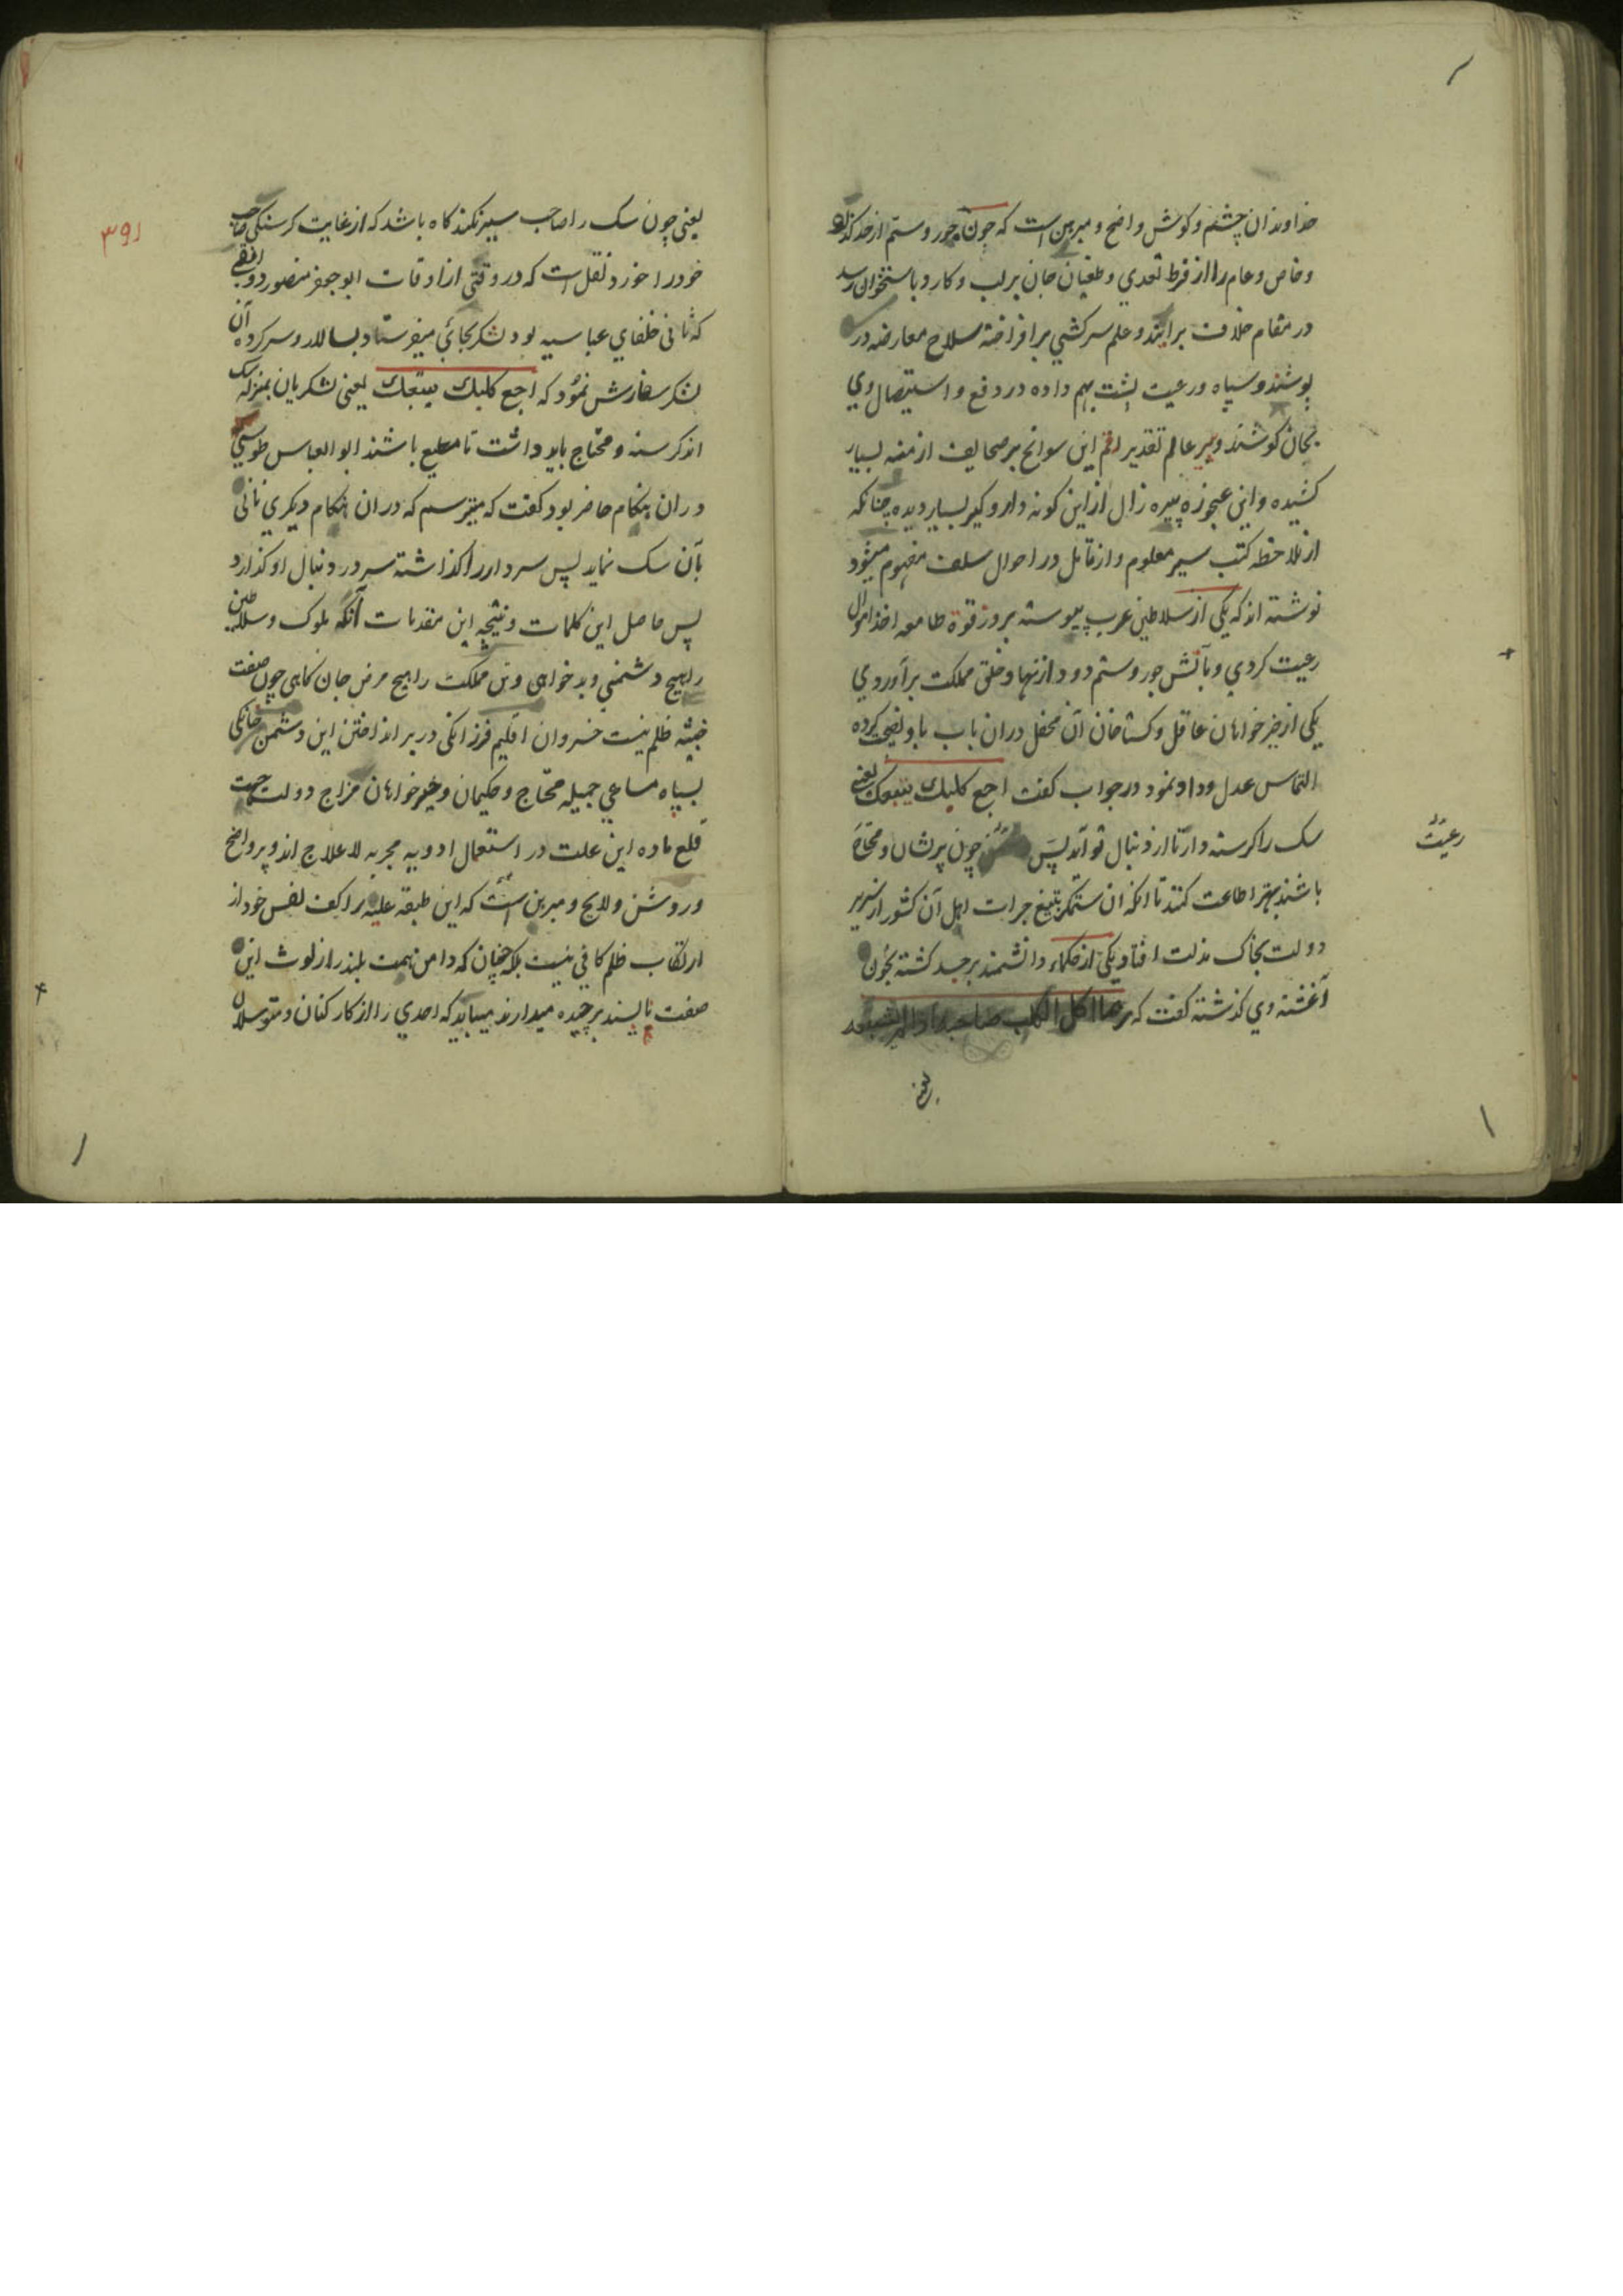 خداوندان چشم و كوش واضح و مبرهن است كه چون جور و ستم از حد كذرد
و خاص و عام را از فرط تعدي و طغيان جان بر لب و كارد باستخوان رسد
در مقام خلاف برايند و علم سركشي برافراخته سلاح معارضه در
پوشند و سپاه و رعيت پشت بهم داده در دفع و استيصال وي
بجان كوشند و پير عالم تقدير رقم اين سوانح بر صحايف ازمنه بسيار
كشيده و اين عجوزه پيره زال از اين كونه دار و كير بسيار ديده چنانكه
از ملاحظه كتب سير معلوم و از تامل در احوال سلف مفهوم ميشود
نوشته اند كه يكي از سلاطين عرب پيوسته بروز قوة طامعه اخذ اموال
رعيت كردي و بآتش جور و ستم دود از نهاد خلق مملكت برآوردي
يكي از خيرخواهان عاقل و كستاخان آن محفل دران باب باو نصيحت كرده
التماس عدل و داد نمود در جواب كفت اجع كلبك يتبعك يعني
سك را كرسنه دار تا از دنبال تو آيد پس چون پرشان و محتاج
رعيت
باشند بهتر اطاعت كنند تا انكه ان ستمكر بتيغ جرات اهل آن كشور از سرير
دولت بخاك مذلت افتاد يكي از حكماء دانشمند بر جسد كشته بخون
آغشته وي كذشته كفت كه ربما اكل الكلب صاحبه اذا لم يشبعه
يعني
۳۹۱
يعني چون سك را صاحب سير نكند كاه باشد كه از غايت كرسنكي صاحب
خود را خورد نقل است كه در وقتي از اوقات ابو جعفر منصور دوانقي
كه ثاني خلفاي عباسيه بود لشكر بجائي ميفرستاد بسالار و سركرده آن
لشكر سفارش نمود كه اجع كلبك يتبعك يعني لشكريان بمنزله سك
اند كرسنه و محتاج بايد داشت تا مطيع باشند ابو العباس طوسي
دران هنكام حاضر بود كفت كه ميترسم كه دران هنكام ديكري ناني
بآن سك نمايد پس سردار را كذاشته سر در دنبال او كذارد
پس حاصل اين كلمات و نتيجه اين مقدمات آنكه ملوك و سلاطين
را هيچ دشمني و بدخواهي و تن مملكت را هيچ مرض جان كاهي چون صفت
خبيثه ظلم نيست خسروان اقليم فرزانكي در برانداختن اين دشمن خانكي
بسپاه مساعي جميله محتاج و حكيمان و خيرخواهان مزاج دولت جهت
قلع ماده اين علت در استعمال ادويه مجربه لا علاج اند و پر واضح
و روشن و لايح و مبرهن است كه اين طبقه عليه را كف نفس خود از
ارتكاب ظلم كافي نيست بلكه چنان كه دامن همت بلند را از لوث اين
صفت ناپسند برچيده ميدارند ميبايد كه احدي را از كاركنان و متوسلان